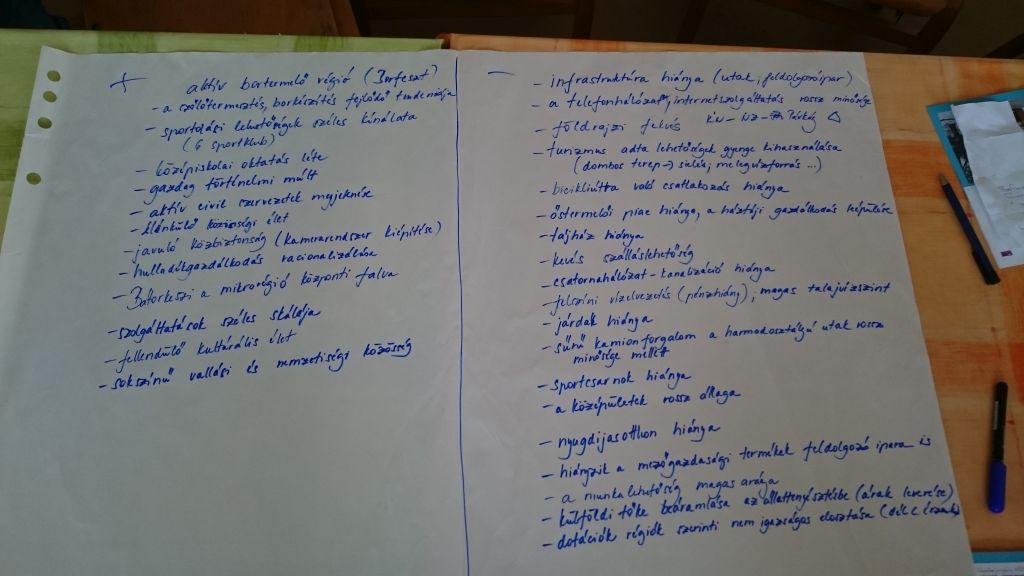 + aktív bortermelő régió (Borfeszt)
- a szőlőtermesztés, borkészítés fejlődő tendenciája
- sportolási lehetőségek széles kínálata
(6 sportklub)
- középiskolai oktatás léte
- gazdag történelmi múlt
- aktív civil szervezetek megjelenése
- élénkülő közösségi élet
- javuló közbiztonság (kamerarendszer kiépítése)
- hulladékgazdálkodás racionalizálása
- Bátorkeszi a mikrorégió központi falva
- szolgáltatások széles skálája
- fellendülő kultúrális élet
- sokszínű vallási és nemzetiségi közösség
- infrastruktúra hiánya (utak, feldolgozóipar)
- a telefonhálózat, internetszolgáltatás rossz minősége
- földrajzi fekvés KN - NZ - Párkány
- turizmus adta lehetőségek gyenge kihasználása
(dombos terep → síelés, melegvízforrás ...)
- bicikliútra való csatlakozás hiánya
- őstermelői piac hiánya, a háztáji gazdálkodás leépülése
- tájház hiánya
- kevés szálláslehetőség
- csatornahálózat - kanalizáció hiánya
- felszíni vízelvezetés (pénzhiány), magas talajvízszint
- járdák hiánya
- sűrű kamionforgalom a harmadosztályú utak rossz
minősége mellett
- sportcsarnok hiánya
- a középületek rossz állaga
- nyugdíjasotthon hiánya
- hiányzik a mezőgazdasági termékek feldolgozó ipara is
- a munkalehetőség magas aránya
- külföldi tőke beáramlása az állattenyésztésbe (árak leverése)
- dotációk régiók szerinti nem igazságos elosztása